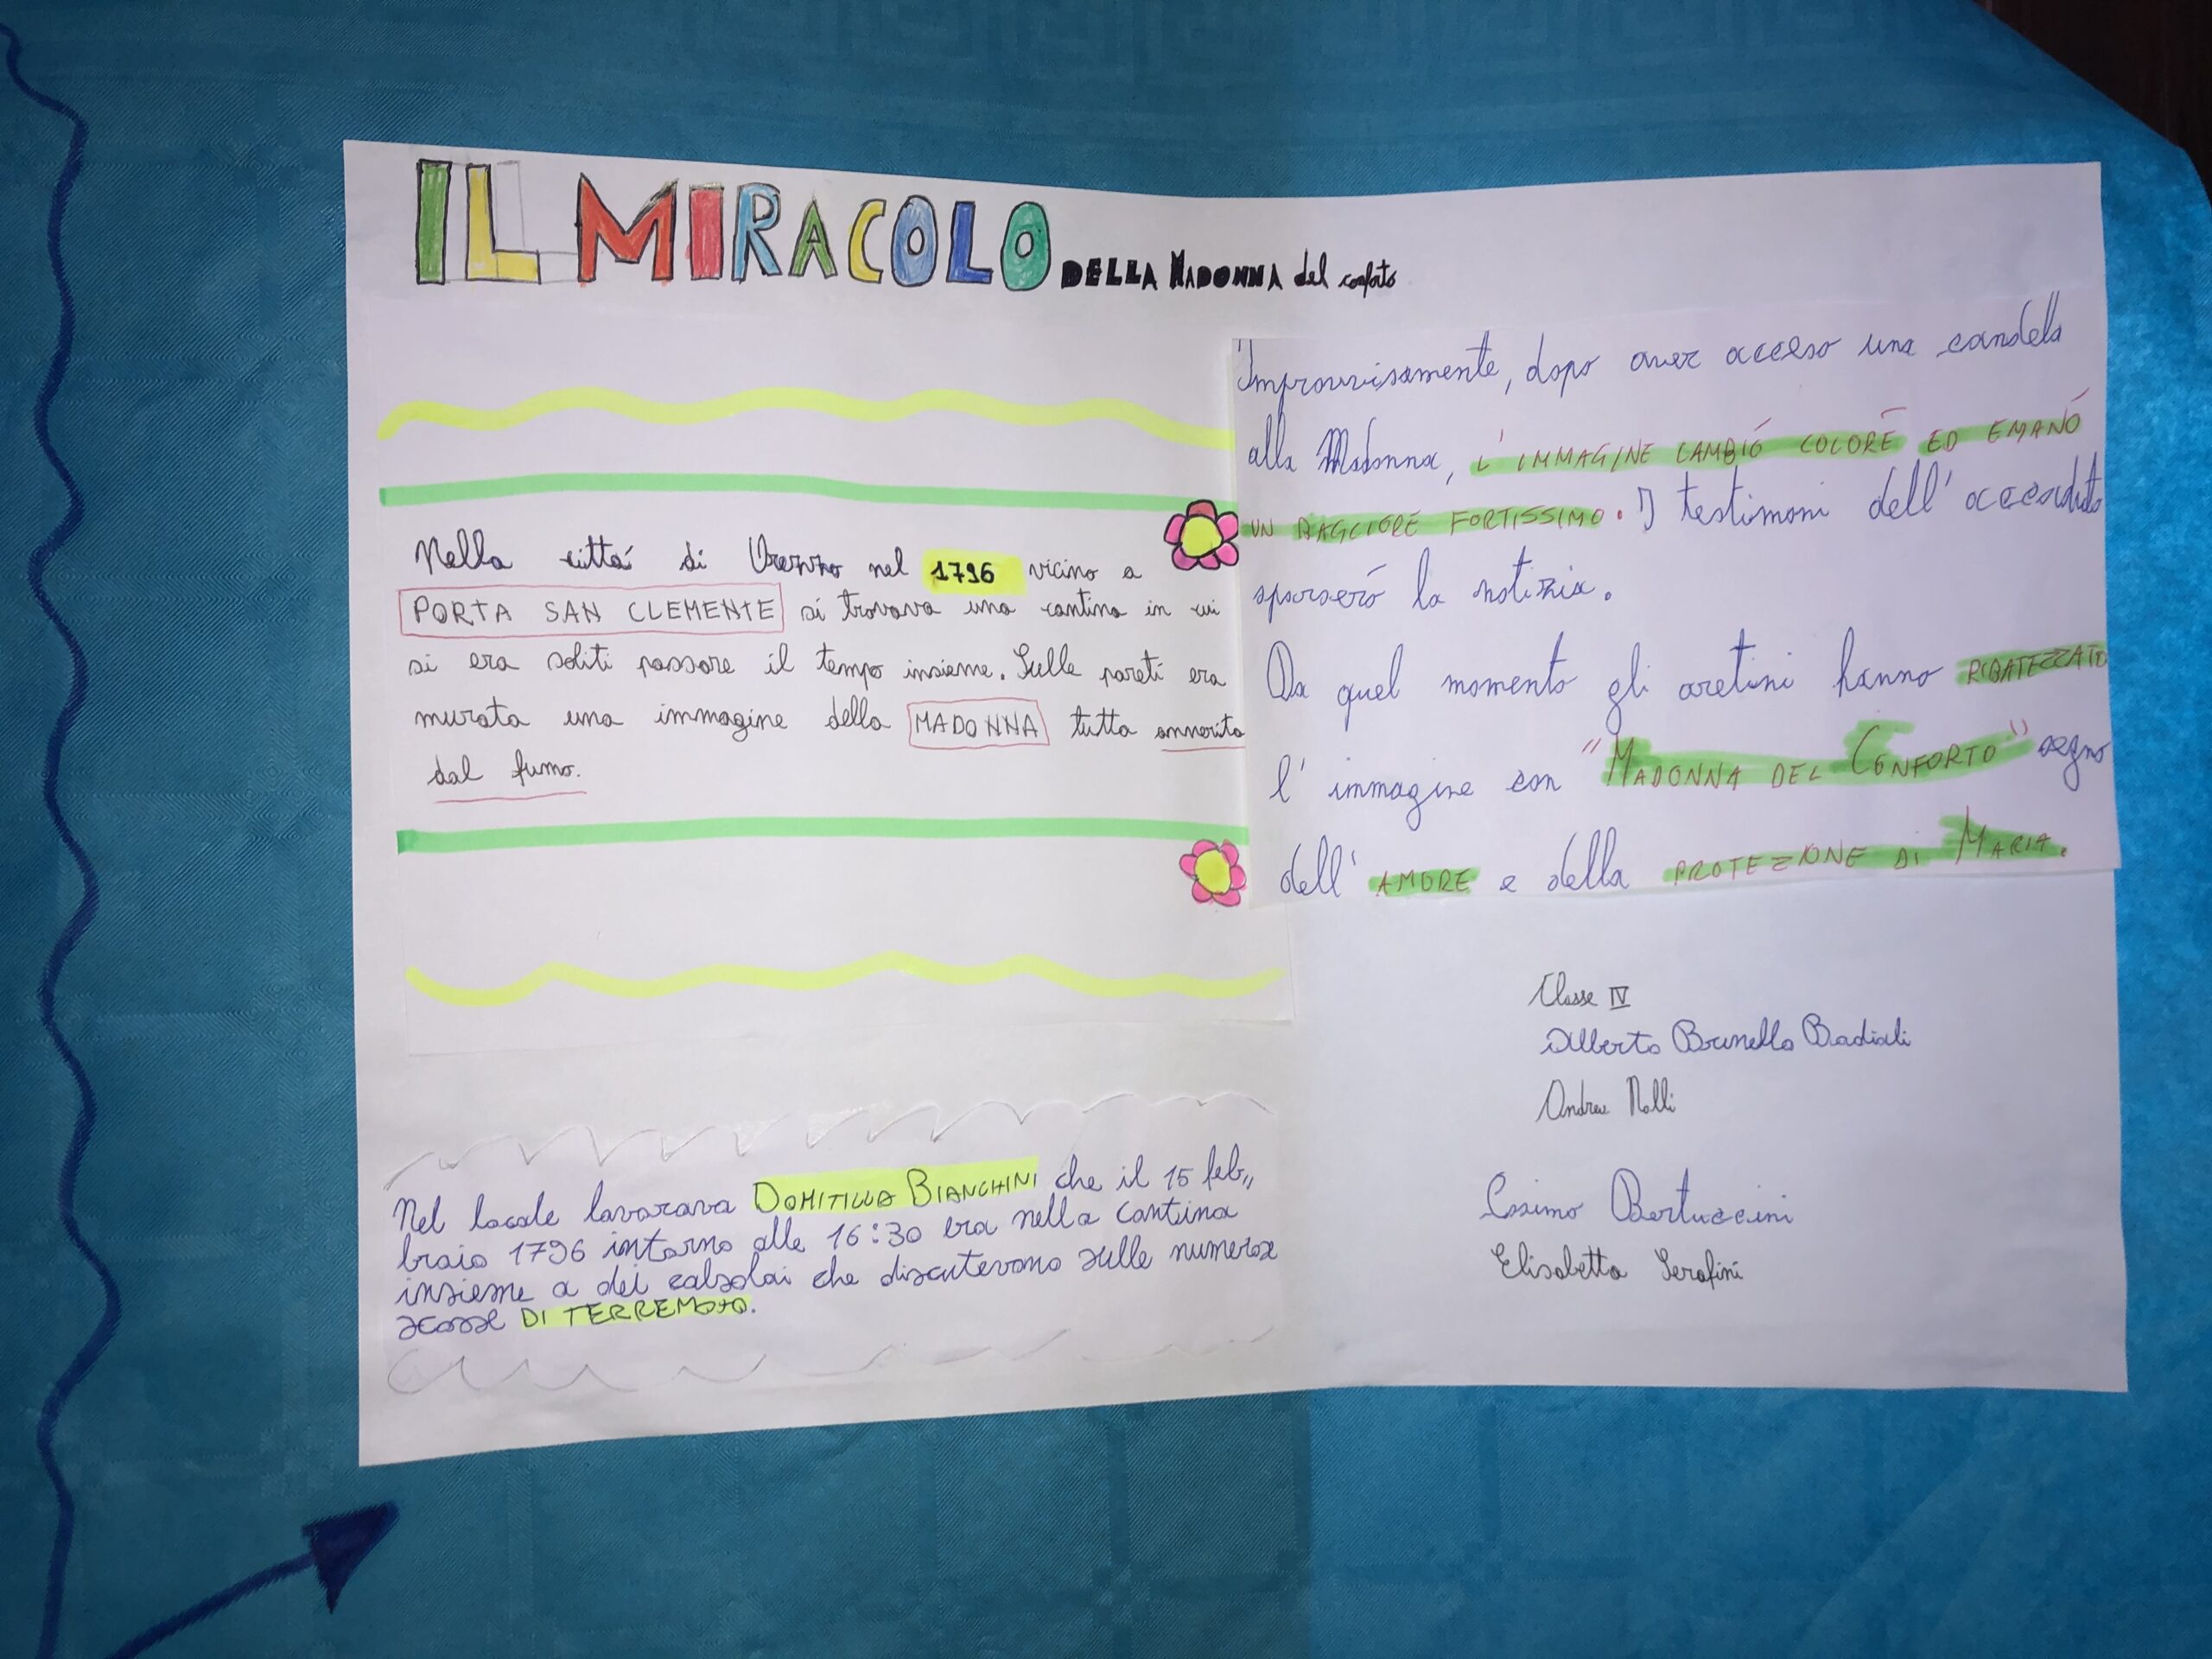 IL MIRACOLO DELLA MADONNA del conforto
Nella cittá di Arezzo nel 1796 vicino a
PORTA SAN CLEMENTE si trovava una cantina in cui
si era soliti passare il tempo insieme. Sulle pareti era
murata una immagine della MADONNA tutta annerita
dal fumo.
Nel locale lavorava DOMITILLA BIANCHINI che il 15 feb,,
braio 1796 intorno alle 16:30 era nella cantina
insieme a dei calzolai che discutevono sulle numerose
scosse DI TERREMOTO.
Improvvisamente, dopo aver acceso una candela
alla Madonna, L'IMMAGINE CAMBIÓ COLORE ED EMANÓ
UN BAGLIORE FORTISSIMO. I testimoni dell'accaduto
sparseró la notizia.
Da quel momento gli aretini hanno RIBATEZZATO
l'immagine con "MADONNA DEL CONFORTO" segno
dell'AMORE e della PROTEZIONE DI MARIA.
Classe IV
Alberto Brunello Badiali
Andrea Nolli
Cosimo Bertuccini
Elisabetta Serafini